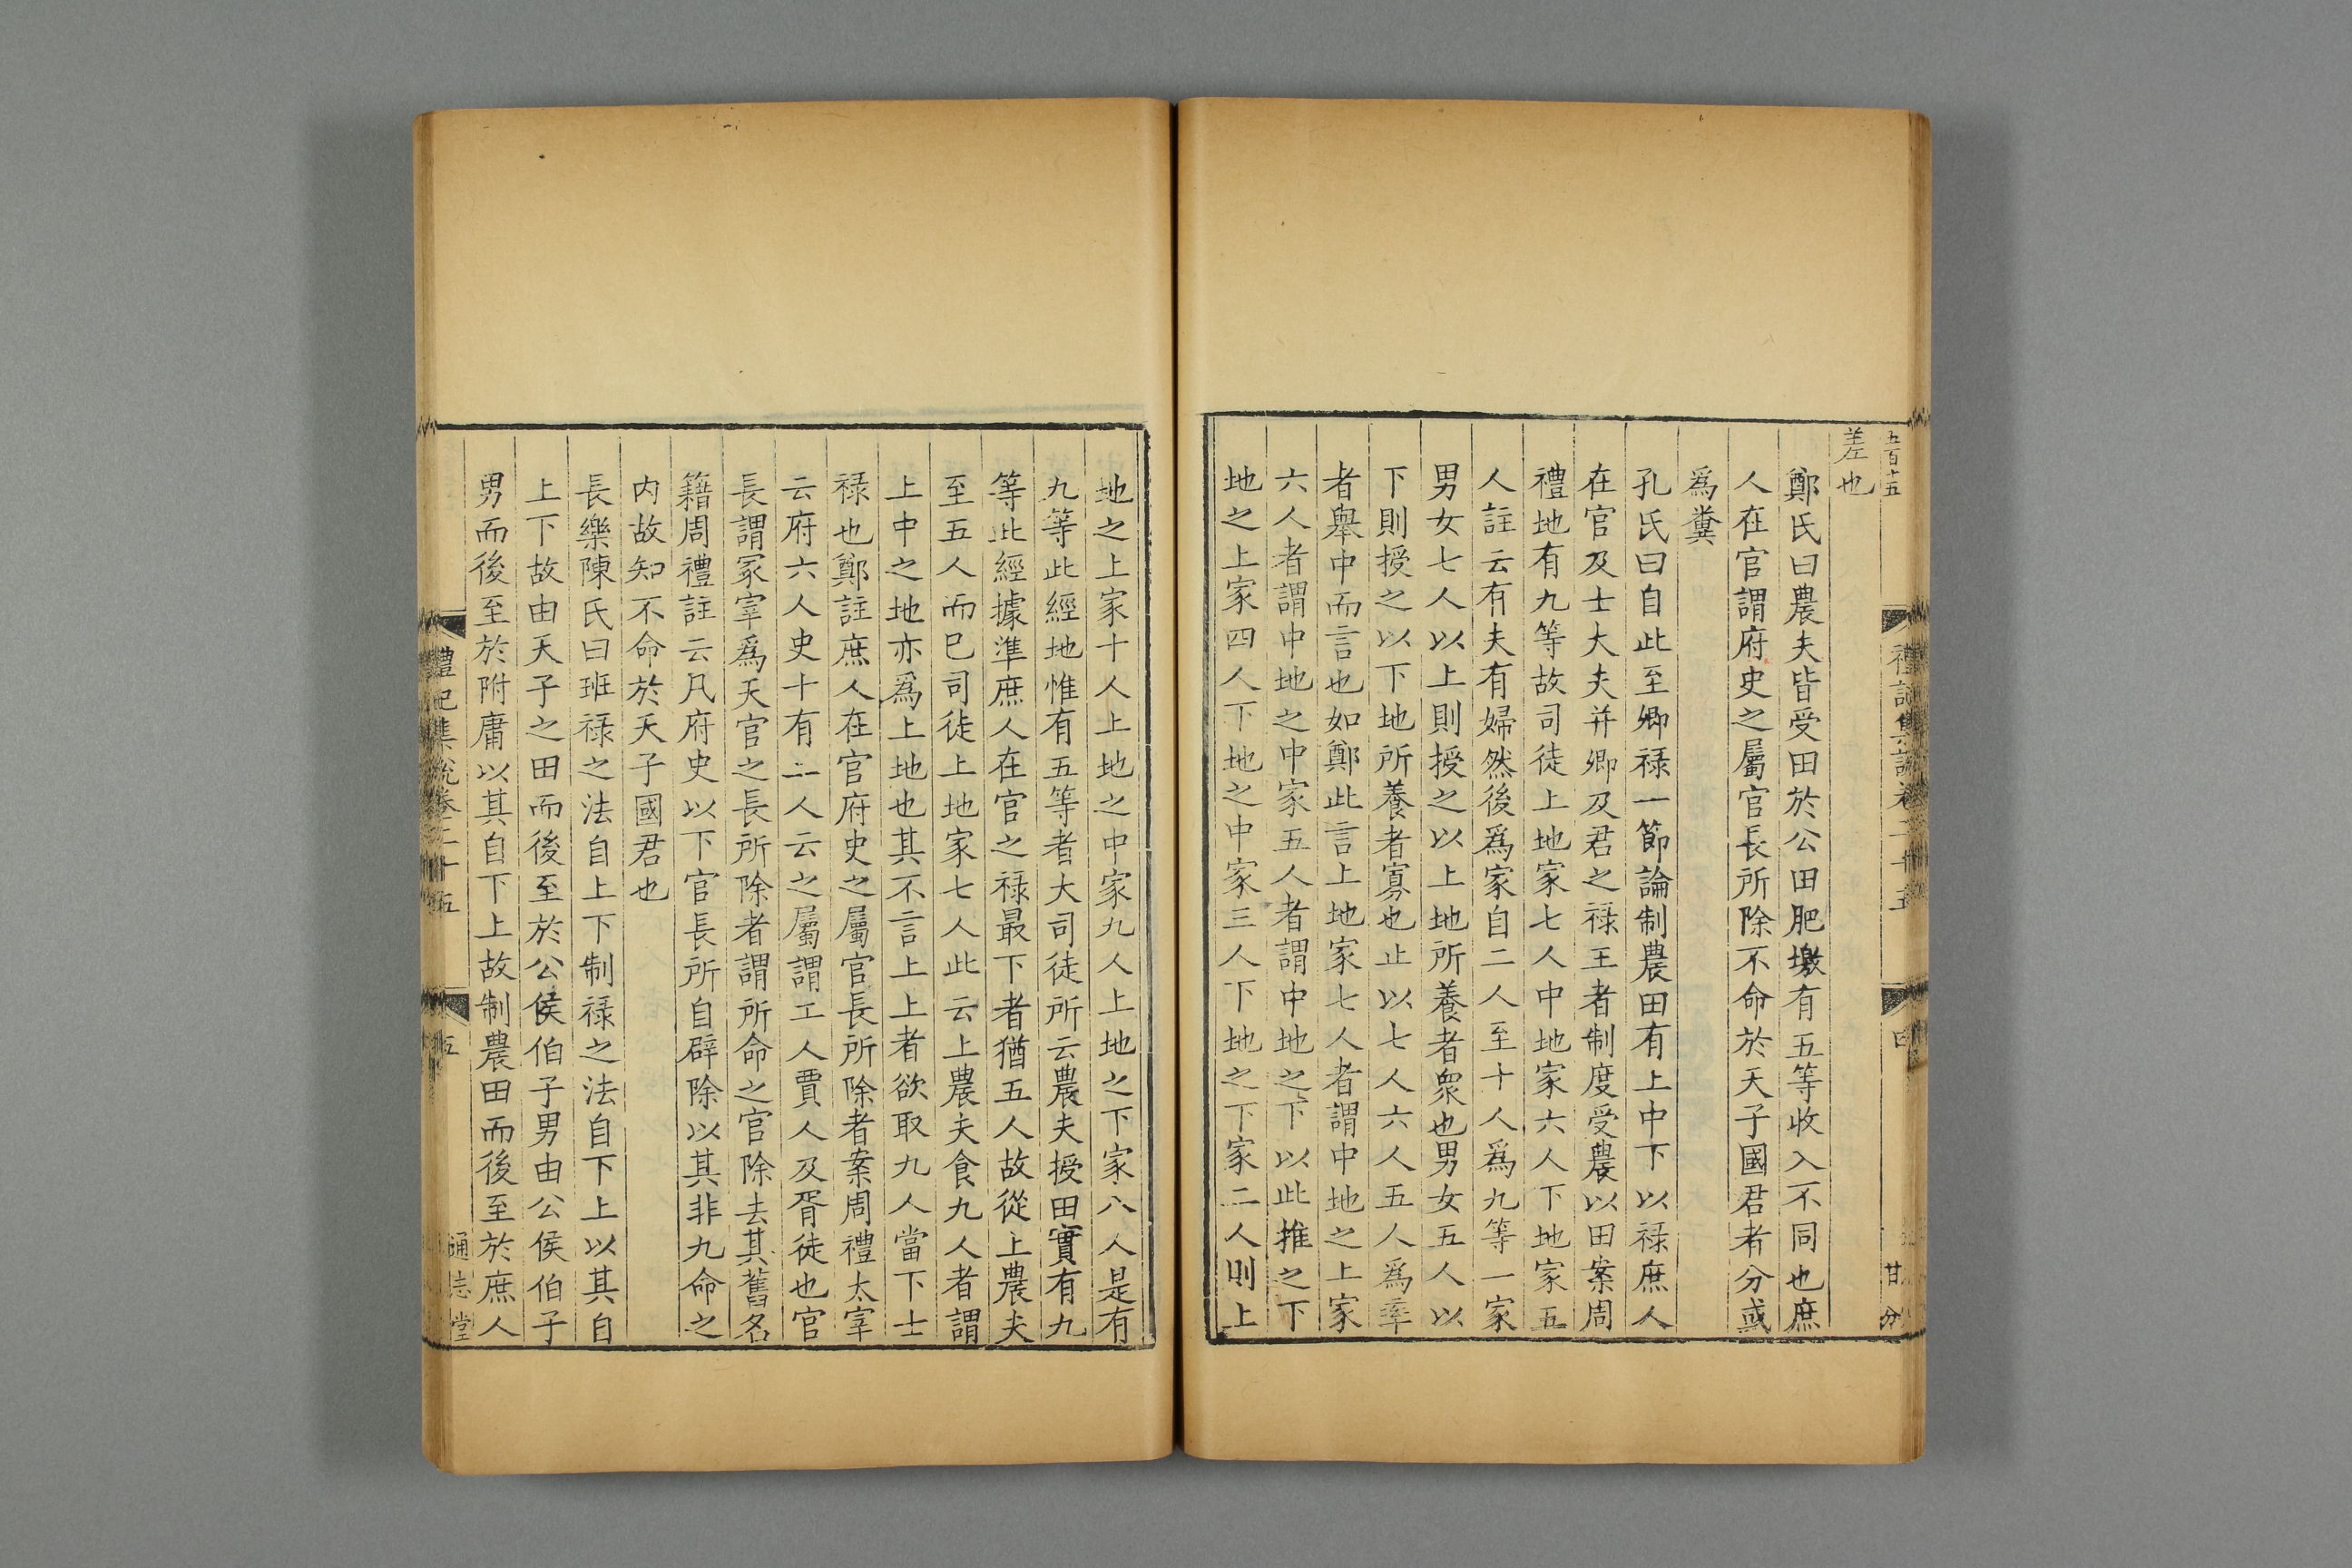 五百十五
禮記集說卷二十五
四
甘
分
差也
鄭氏曰農夫皆受田於公田肥墽有五等收入不同也庶
人在官謂府史之屬官長所除不命於天子國君者分或
爲糞
孔氏曰自此至卿祿一節論制農田有上中下以祿庶人
在官及士大夫并卿及君之祿王者制度受農以田案周
禮地有九等故司徒上地家七人中地家六人下地家五
人註云有夫有婦然後爲家自二人至十人爲九等一家
男女七人以上則授之以上地所養者衆也男女五人以
下則授之以下地所養者寡也止以七人六人五人爲率
者舉中而言也如鄭此言上地家七人者謂中地之上家
六人者謂中地之中家五人者謂中地之下以此推之下
地之上家四人下地之中家三人下地之下家二人則上
地之上家十人上地之中家九人上地之下家八人是有
九等此經地惟有五等者大司徒所云農夫授田實有九
等此經據準庶人在官之祿最下者猶五人故從上農夫
至五人而巳司徒上地家七人此云上農夫食九人者謂
上中之地亦爲上地也其不言上上者欲取九人當下士
祿也鄭註庶人在官府史之屬官長所除者案周禮太宰
云府六人史十有二人云之屬謂工人賈人及胥徒也官
長謂冢宰爲天官之長所除者謂所命之官除去其舊名
籍周禮註云凡府史以下官長所自辟除以其非九命之
内故知不命於天子國君也
長樂陳氏曰班祿之法自上下制祿之法自下上以其自
上下故由天子之田而後至於公侯伯子男由公侯伯子
男而後至於附庸以其自下上故制農田而後至於庶人
禮記集說卷二十五
五
通志堂